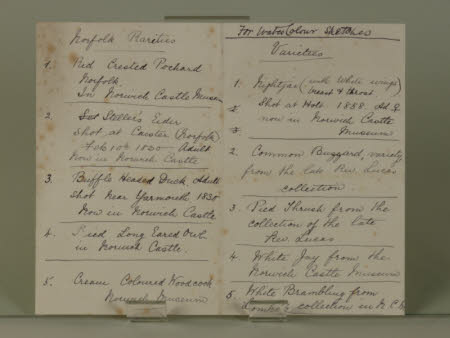 Norfolk Rarities
1. Red Crested Pochard
Norfolk
In Norwich Castle Museum
2. Steller's Eider
shot at Caister (Norfolk)
Feb 10th 1830 Adult
Now in Norwich Castle
3. Buffle Headed Duck, Adult
Shot near Yarmouth 1830
Now in Norwich Castle
4. Pied Long Eared Owl
in Norwich Castle.
5. Cream Coloured Woodcock
Norwich Museum
For Water Colour Sketches
Varieties
1. Nightjar (with White wings
breast & throat
Shot at Holt 1888.
now in Norwich Castle
Museum
2. Common Buzzard, variety
from the late Rev. Lucas
collection.
3. Pied Thrush from the
collection of the late
Rev. Lucas
4. White Jay from the
Norwich Castle Museum
5. White Brambling from
collection in N.C.